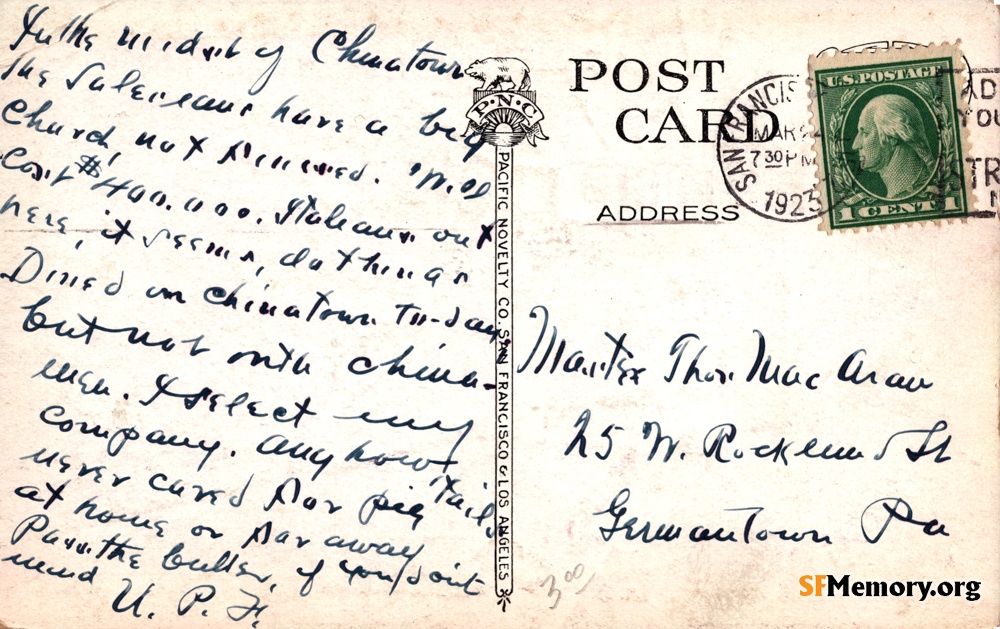 In the midst of Chinatown
the Salesians have a big
Church, not finished. Will
cost $400.000. Italians out
here, it seems, do things
Dined in Chinatown to-day
but not with China-
men. I select my
company. Anyhow I
never cared for pig tails
at home or far away
Pass the butter, if you don't
mind U. P. H.
P.N.C
PACIFIC NOVELTY CO. SAN FRANCISCO & LOS ANGELES
POST
CARD
ADDRESS
SAN FRANCIS
MAR
7 30 PM
1923
U.S. POSTAGE
1 CENT 1
AD
YOU
STR
N
Master Thos. Mac
25 W. Rockland St
Germantown Pa
3.00
SFMemory.org